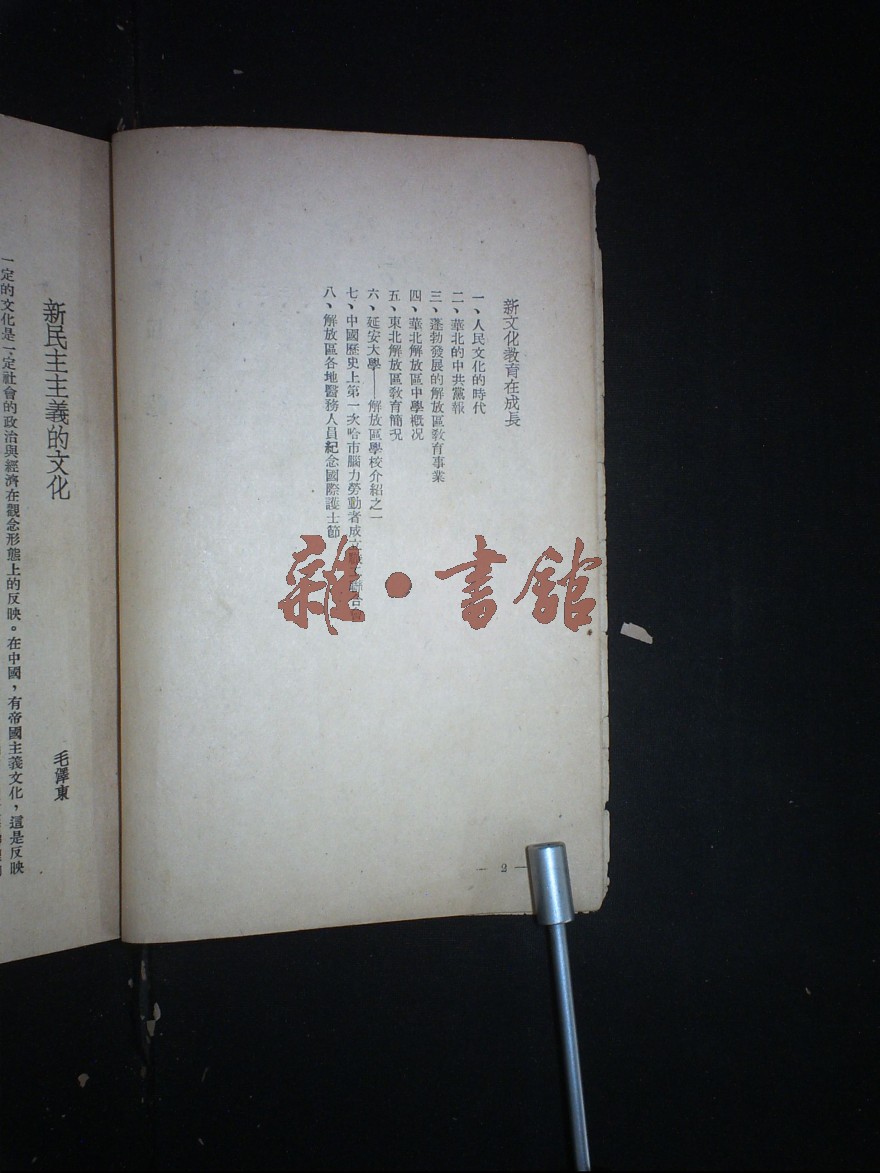 新文化教育在成長
一、人民文化的時代
二、華北的中共黨報
三、蓬勃發展的解放區教育事業
四、華北解放區中學概況
五、東北解放區教育簡況
六、延安大學——解放區學校介紹之一
七、中國歷史上第一次哈市腦力勞動者成立
八、解放區各地醫務人員紀念國際護士節
— 2 —
新民主主義的文化
毛澤東
一定的文化是一定社會的政治與經濟在觀念形態上的反映。在中國，有帝國主義文化，這是反映
雜·書館